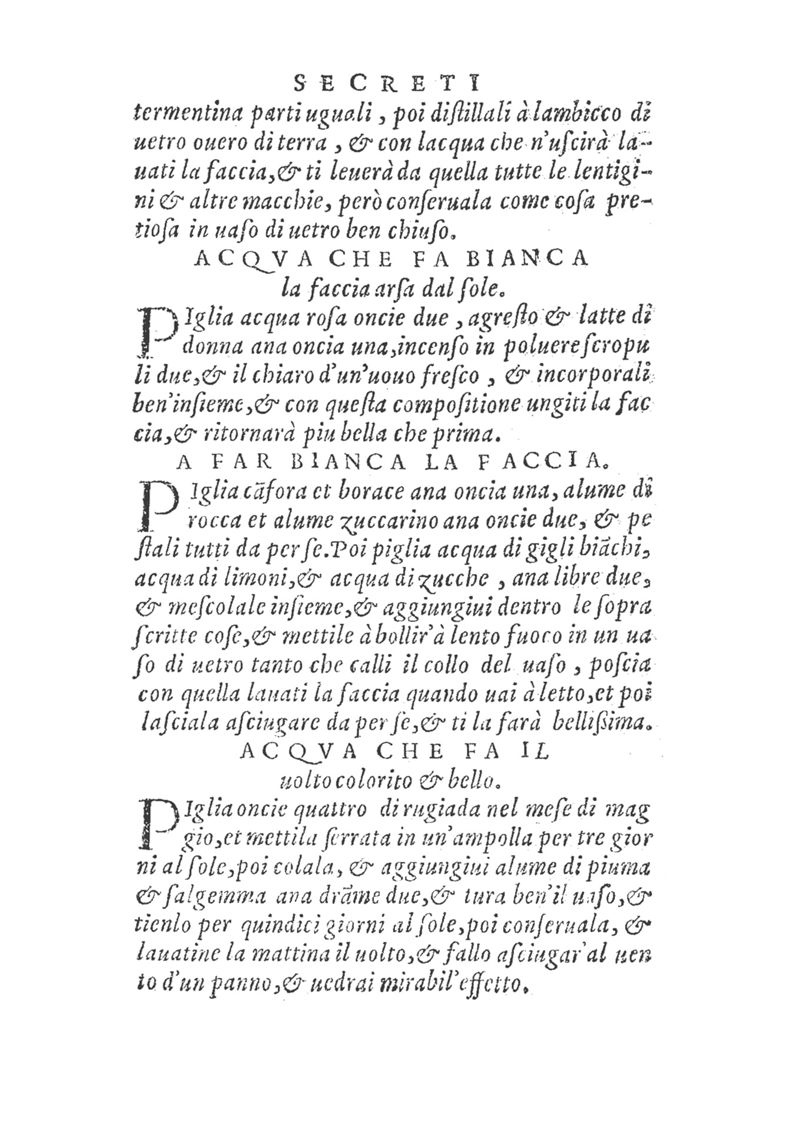 SECRETI
termentina parti uguali, poi diſtillali à lambicco di
uetro ouero di terra, & con lacqua che n'uſcirà la-
uati la faccia, & ti leuerà da quella tutte le lentigi-
ni & altre macchie, però conſeruala come coſa pre-
tioſa in uaſo di uetro ben chiuſo.
ACQVA CHE FA BIANCA
la faccia arſa dal ſole.
PIglia acqua roſa oncie due, agreſto & latte di
donna ana oncia una, incenſo in poluere ſcropu
li due, & il chiaro d'un'uouo freſco, & incorporali
ben'inſieme, & con queſta compoſitione ungiti la fac
cia, & ritornarà piu bella che prima.
A FAR BIANCA LA FACCIA.
PIglia cãfora et borace ana oncia una, alume di
rocca et alume zuccarino ana oncie due, & pe
ſtali tutti da per ſe. Poi piglia acqua di gigli biãchi,
acqua di limoni, & acqua di zucche, ana libre due,
& meſcolale inſieme, & aggiungiui dentro le ſopra
ſcritte coſe, & mettile à bollir'à lento fuoco in un ua
ſo di uetro tanto che calli il collo del uaſo, poſcia
con quella lauati la faccia quando uai à letto, et poi
laſciala aſciugare da per ſe, & ti la farà belliſsima.
ACQVA CHE FA IL
uolto colorito & bello.
PIglia oncie quattro di rugiada nel meſe di mag
gio, et mettila ſerrata in un'ampolla per tre gior
ni al ſole, poi colala, & aggiungiui alume di piuma
& ſalgemma ana drãme due, & tura ben'il uaſo, &
tienlo per quindici giorni al ſole, poi conſeruala, &
lauatine la mattina il uolto, & fallo aſciugar'al uen
to d'un panno, & uedrai mirabil'effetto.